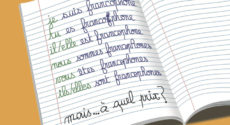 je suis francophone
tu es francophone
il/elle est francophone
nous sommes francophones
vous êtes francophones
ils/elles sont francophones
mais...à quel prix?